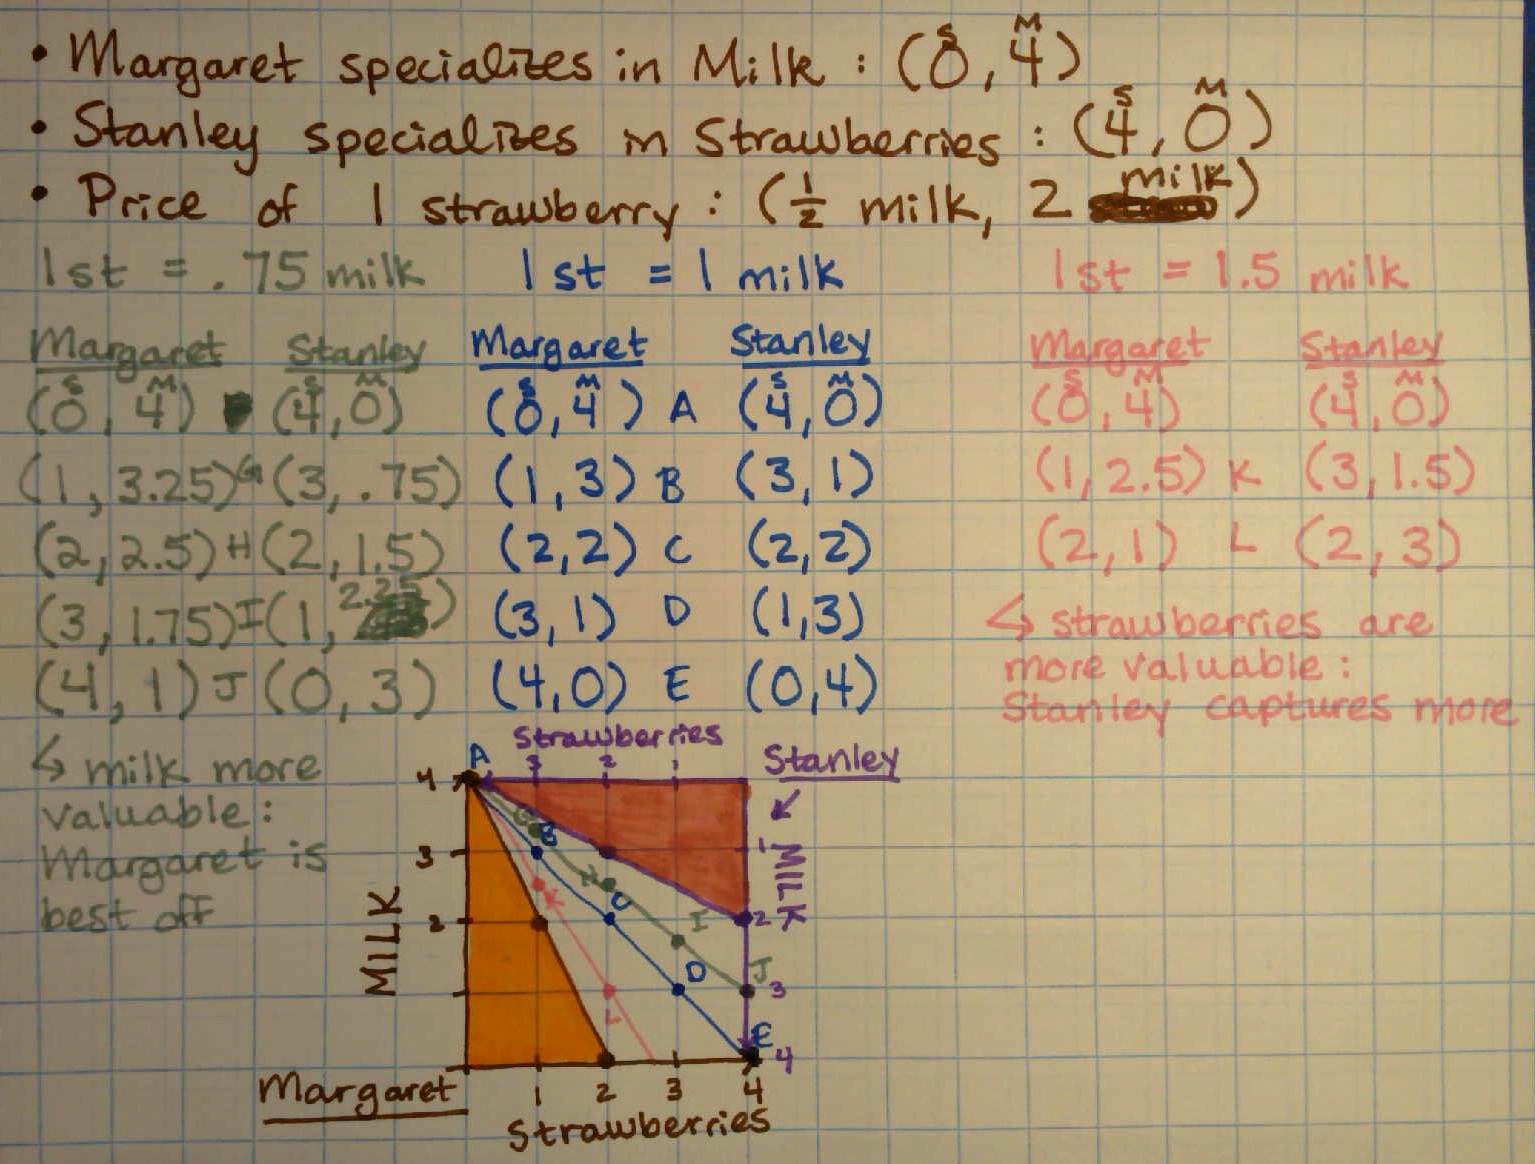 • Margaret specializes in Milk : (0, 4)
S M
• Stanley specializes in Strawberries : (4, 0)
S M
• Price of 1 strawberry : (½ milk, 2 milk)
1st = .75 milk
Margaret Stanley
S M S M
(0, 4) (4, 0)
(1, 3.25) G (3, .75)
(2, 2.5) H (2, 1.5)
(3, 1.75) I (1, 2.25)
(4, 1) J (0, 3)
↳ milk more
valuable:
Margaret is
best off
1 st = 1 milk
Margaret Stanley
S M S M
(0, 4) A (4, 0)
(1, 3) B (3, 1)
(2, 2) C (2, 2)
(3, 1) D (1, 3)
(4, 0) E (0, 4)
1st = 1.5 milk
Margaret Stanley
S M S M
(0, 4) (4, 0)
(1, 2.5) K (3, 1.5)
(2, 1) L (2, 3)
↳ strawberries are
more valuable:
Stanley captures more
Strawberries
3 2 1
Stanley
A
4
3
2
MILK
G
B
H
C
I
D
J
E
K
L
1
2
3
4
MILK
Margaret
1 2 3 4
Strawberries